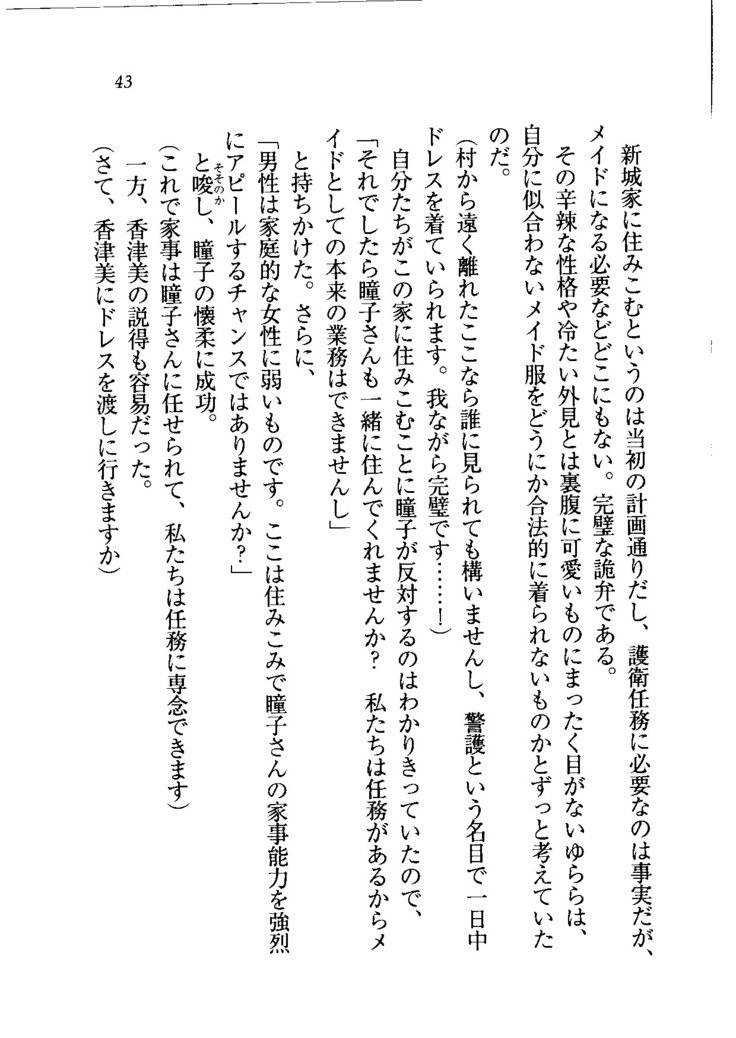 43
新城家に住みこむというのは当初の計画通りだし、護衛任務に必要なのは事実だが、
メイドになる必要などどこにもない。完璧な詭弁である。
その辛辣な性格や冷たい外見とは裏腹に可愛いものにまったく目がないゆららは、
自分に似合わないメイド服をどうにか合法的に着られないものかとずっと考えていた
のだ。
（村から遠く離れたここなら誰に見られても構いませんし、警護という名目で一日中
ドレスを着ていられます。我ながら完璧です……！）
自分たちがこの家に住みこむことに瞳子が反対するのはわかりきっていたので、
「それでしたら瞳子さんも一緒に住んでくれませんか？　私たちは任務があるからメ
イドとしての本来の業務はできませんし」
と持ちかけた。さらに、
「男性は家庭的な女性に弱いものです。ここは住みこみで瞳子さんの家事能力を強烈
にアピールするチャンスではありませんか？」
と唆し、瞳子の懐柔に成功。
そそのか
（これで家事は瞳子さんに任せられて、私たちは任務に専念できます）
一方、香津美の説得も容易だった。
（さて、香津美にドレスを渡しに行きますか）